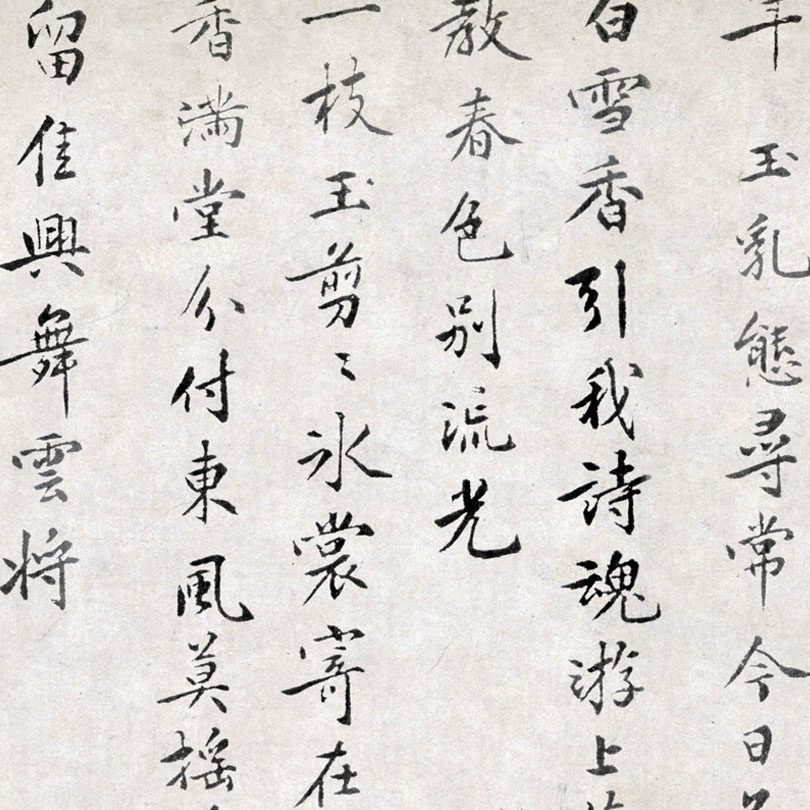 玉乳態尋常今日
白雪香引我詩魂游上
教春色別流光
一枝玉剪〻冰裳寄在
香滿堂分付東風莫摇
留佳興舞雲将